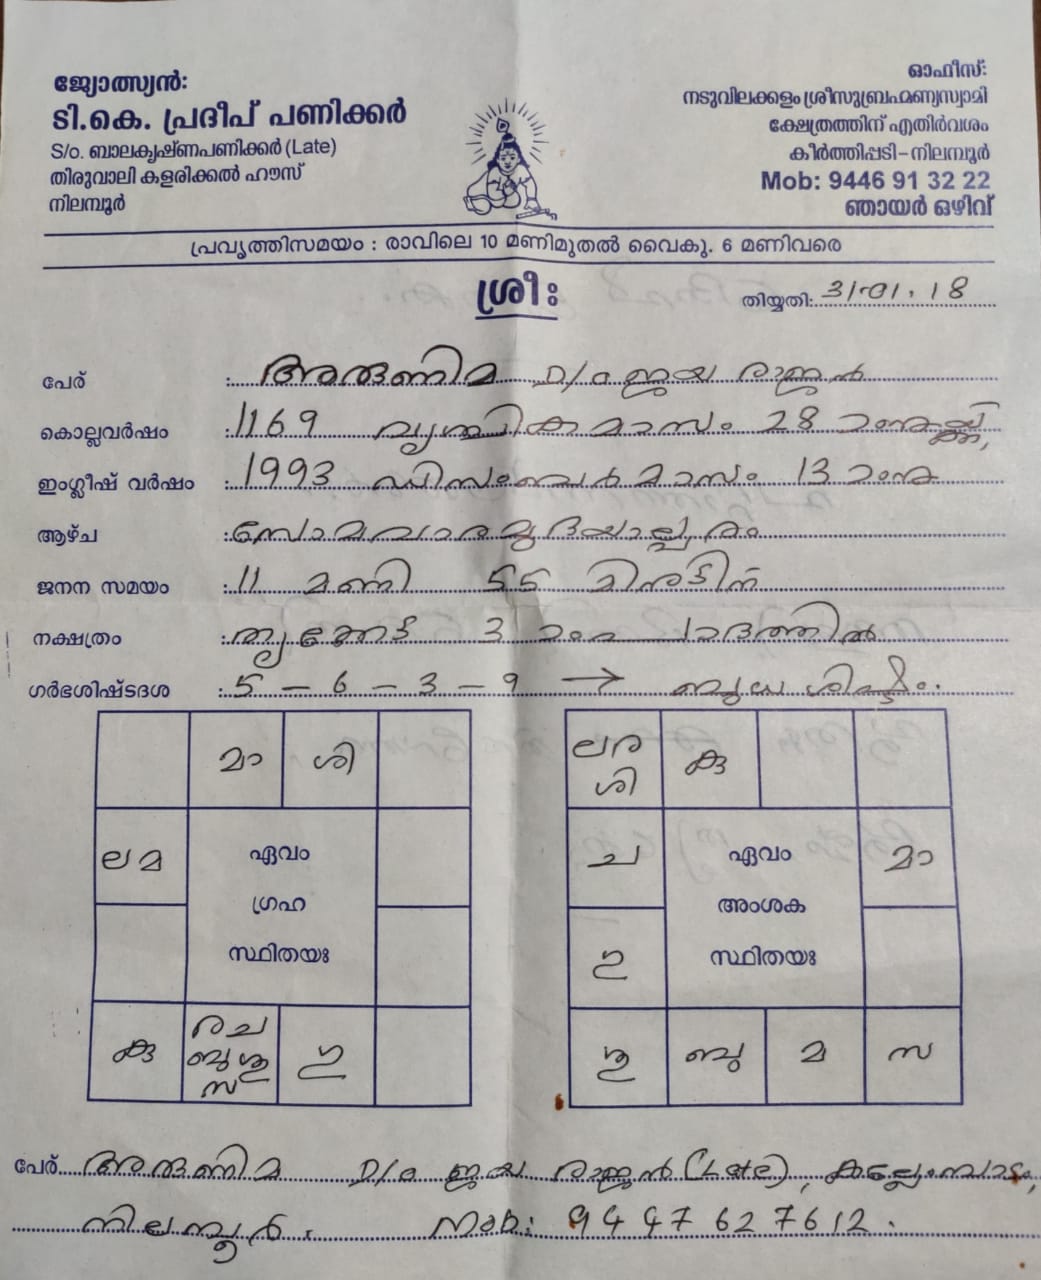 ജ്യോത്സ്യൻ:
ടി.കെ. പ്രദീപ് പണിക്കർ
S/o. ബാലകൃഷ്ണപണിക്കർ (Late)
തിരുവാലി കളരിക്കൽ ഹൗസ്
നിലമ്പൂർ
ഓഫീസ്:
നടുവിലക്കളം ശ്രീസുബ്രഹ്മണ്യസ്വാമി
ക്ഷേത്രത്തിന് എതിർവശം
കീർത്തിപ്പടി-നിലമ്പൂർ
Mob: 9446 91 32 22
ഞായർ ഒഴിവ്
പ്രവൃത്തിസമയം : രാവിലെ 10 മണിമുതൽ വൈകു. 6 മണിവരെ
ശ്രീഃ
തിയ്യതി: 31-01-18
പേര് : അരുണിമ D/o ജയ രാജൻ
കൊല്ലവർഷം : 1169 വൃശ്ചിക മാസം 28
ഇംഗ്ലീഷ് വർഷം : 1993 ഡിസംബർ മാസം 13 ാംനു
ആഴ്ച : സോമവാരമുദയാല്പരം
ജനന സമയം : 11 മണി 55 മിനുട്ടിന്
നക്ഷത്രം : തൃക്കേട്ട 3 ാം പാദത്തിൽ
ഗർഭശിഷ്ടദശ : 5 - 6 - 3 - 9 → ബുധ ശിഷ്ടം.
മാ ശി
ല മ
ഏവം
ഗ്രഹ
സ്ഥിതയഃ
കു
ര ച
ബു ശു
സ
ഗു
ല ര
ശി
കു
ച
ഏവം
അംശക
സ്ഥിതയഃ
മാ
ഗു
ശു ബു മ സ
പേര് അരുണിമ D/o ജയ രാജൻ (Late),
നിലമ്പൂർ. Mob: 9447 627612.